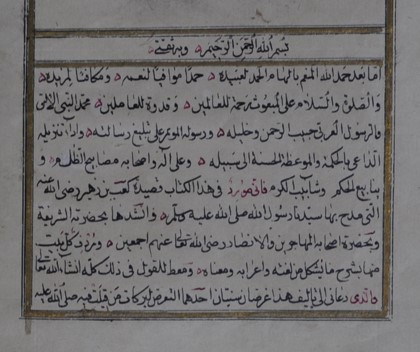 بسم الله الرحمن الرحيم وبه ثقتي
أما بعد حمد الله المنعم بالهام الحمد لعبيده حمدا موافيا لنعمه ومكافئا لمزيده
والصلوة والسلام على المبعوث رحمة للعالمين وقدوة للعاملين محمد النبي الامي
والرسول العربي حبيب الرحمن وخليله ورسوله المؤتمن على تبليغ رسالته واداء تنزيله
الداعي بالحكمة والموعظة الحسنة الى سبيله وعلى آله واصحابه مصابيح الظلم و
ينابيع الحكم وشآبيب الكرم فاني مورد في هذا الكتاب قصيدة كعب بن زهير رضي الله عنه
التي مدح بها سيدنا رسول الله صلى الله عليه وسلم وانشدها بحضرته الشريفة
وبحضرة اصحابه المهاجرين والانصار رضي الله تعالى عنهم اجمعين ومردف كل بيت
منها بشرح ما يشكل من لغته واعرابه ومعناه ومعط للقول في ذلك كله انشاء الله تعالى
والذي دعاني الى تأليف هذا غرضان سنيان احدهما التعرض لبركات من قيلت فيه صلى الله عليه